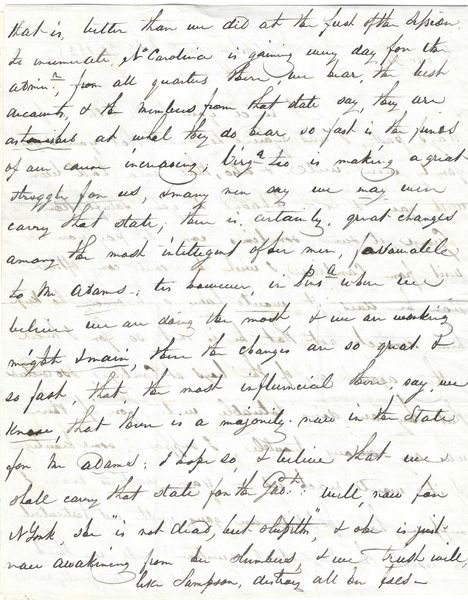 that is, better than we did at the first of the session.
To enumerate, No Carolina is gaining every day for the
adminn, from all quarters there we hear, the best
accounts, & the members from that state say, they are
astonished at what they do hear, so fast is the friends
of our cause increasing; Virga too is making a great
struggle for us, & many men say we may even
carry that state; there is, certainly, great changes
among the most intelligent of her men, favourable
to Mr Adams; tis however, in Pena where we
believe we are doing the most, & we are working
might & main, there the changes are so great &
so fast, that, the most influencial there say, we
know, that there is a majority now in the State
for Mr Adams; I hope so, & believe that we
shall carry that state for the Gov.t; well, now for
N York, she "is not dead, but", & she is just
now awakening from her slumbers, & we trust will,
like Sampson, destroy all her foes—